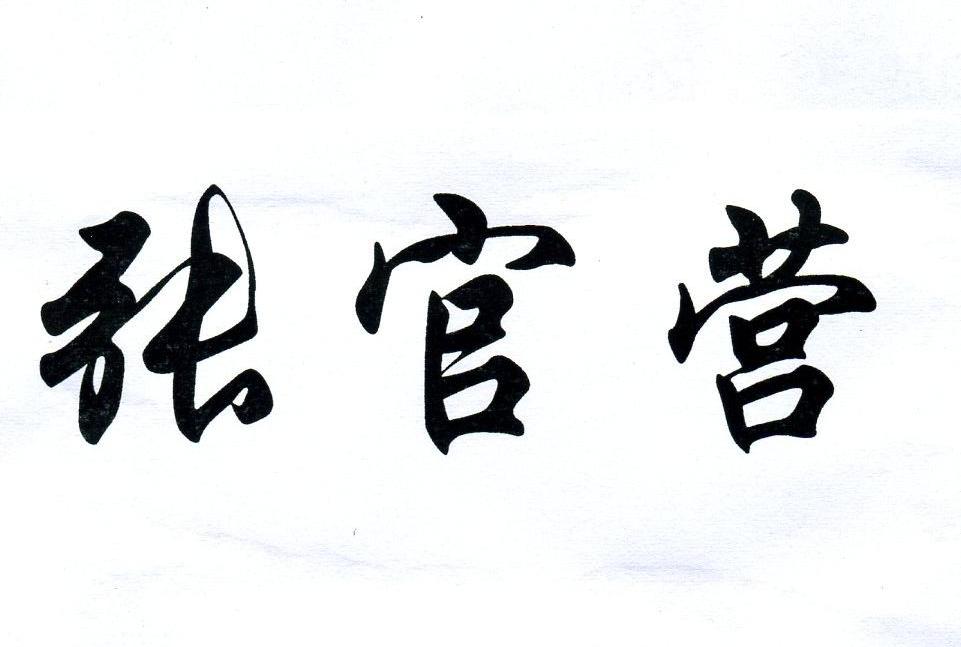 张官营